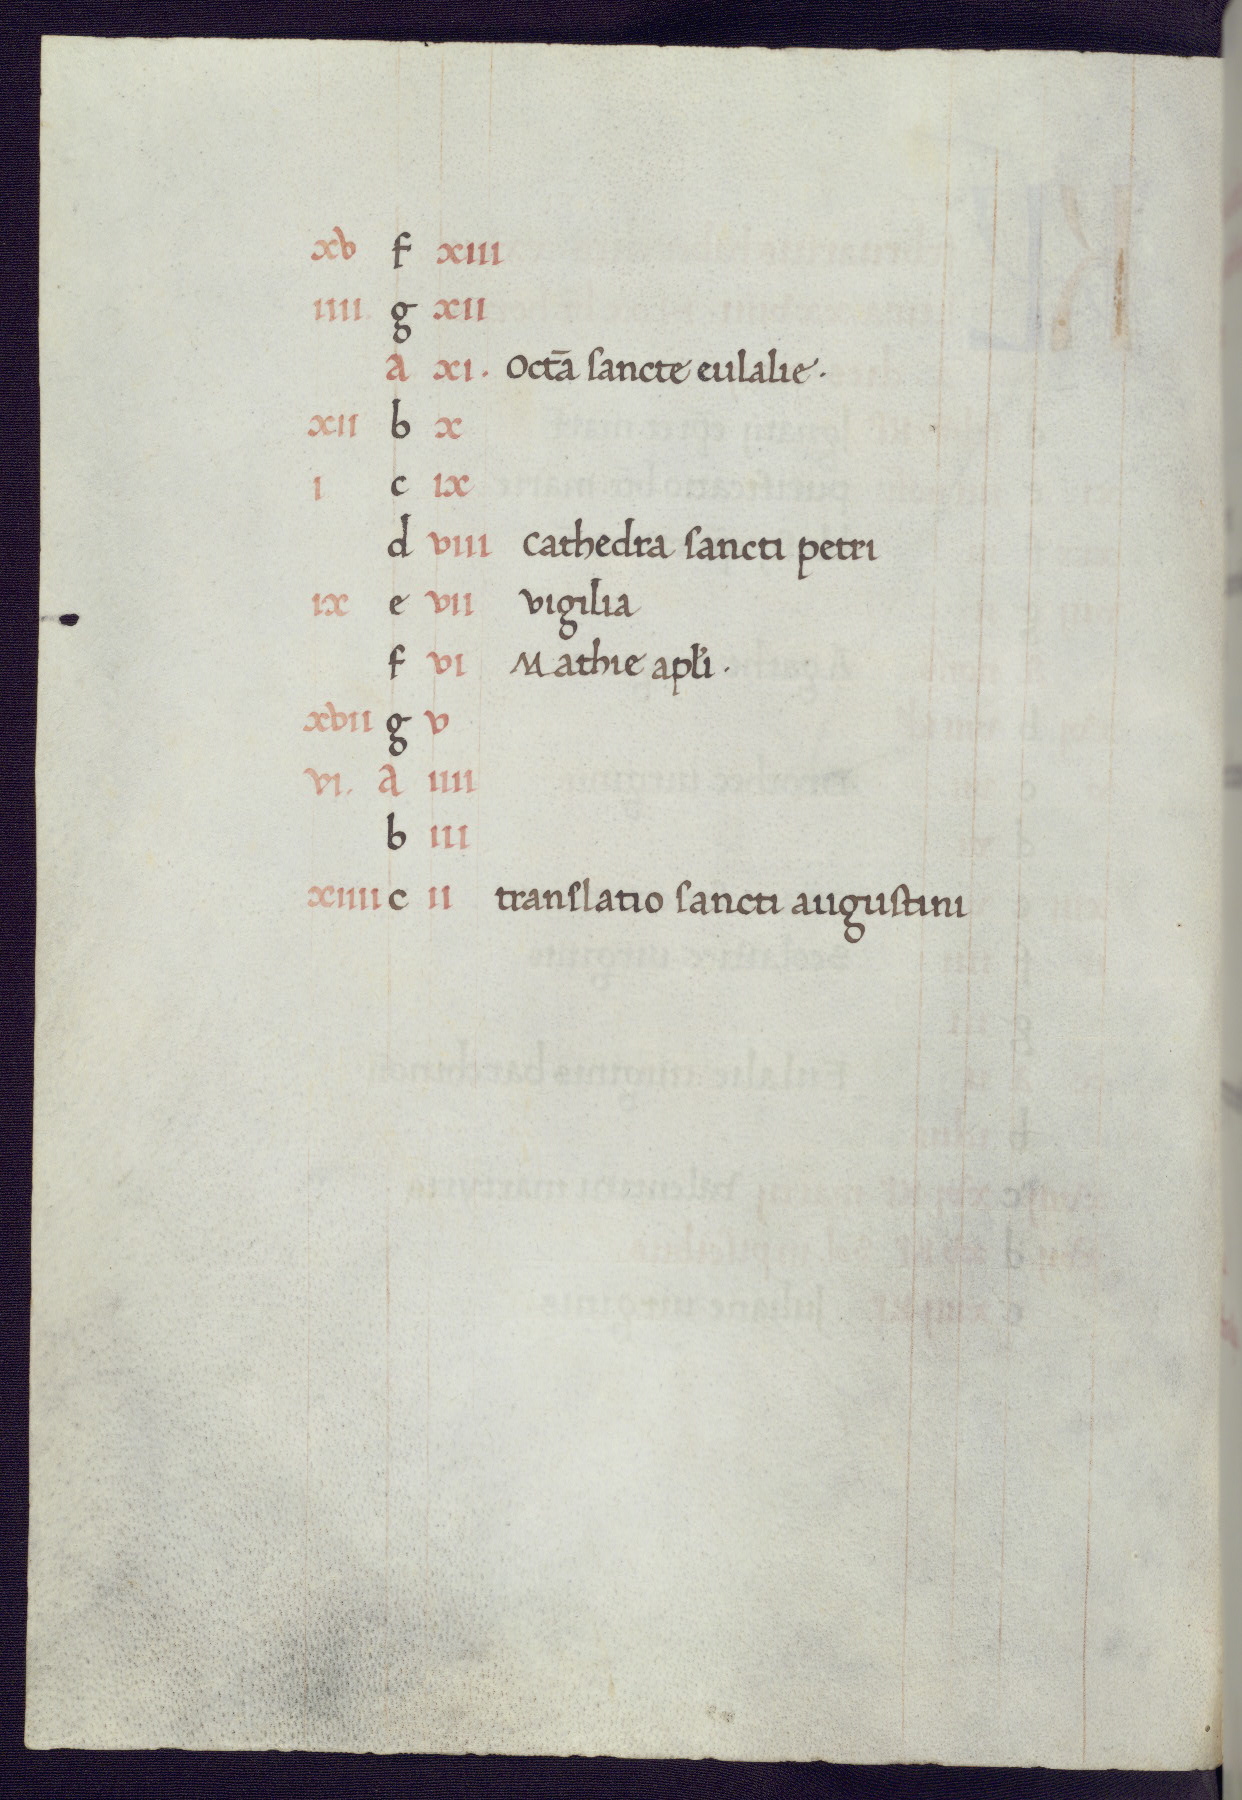 xv f xiii
iiii. g xii
a xi. Octā sancte eulalie.
xii b x
i c ix
d viii cathedra sancti petri
ix e vii vigilia
f vi Mathie apli.
xvii g v
vi. a iiii
b iii
xiiii c ii translatio sancti augustini